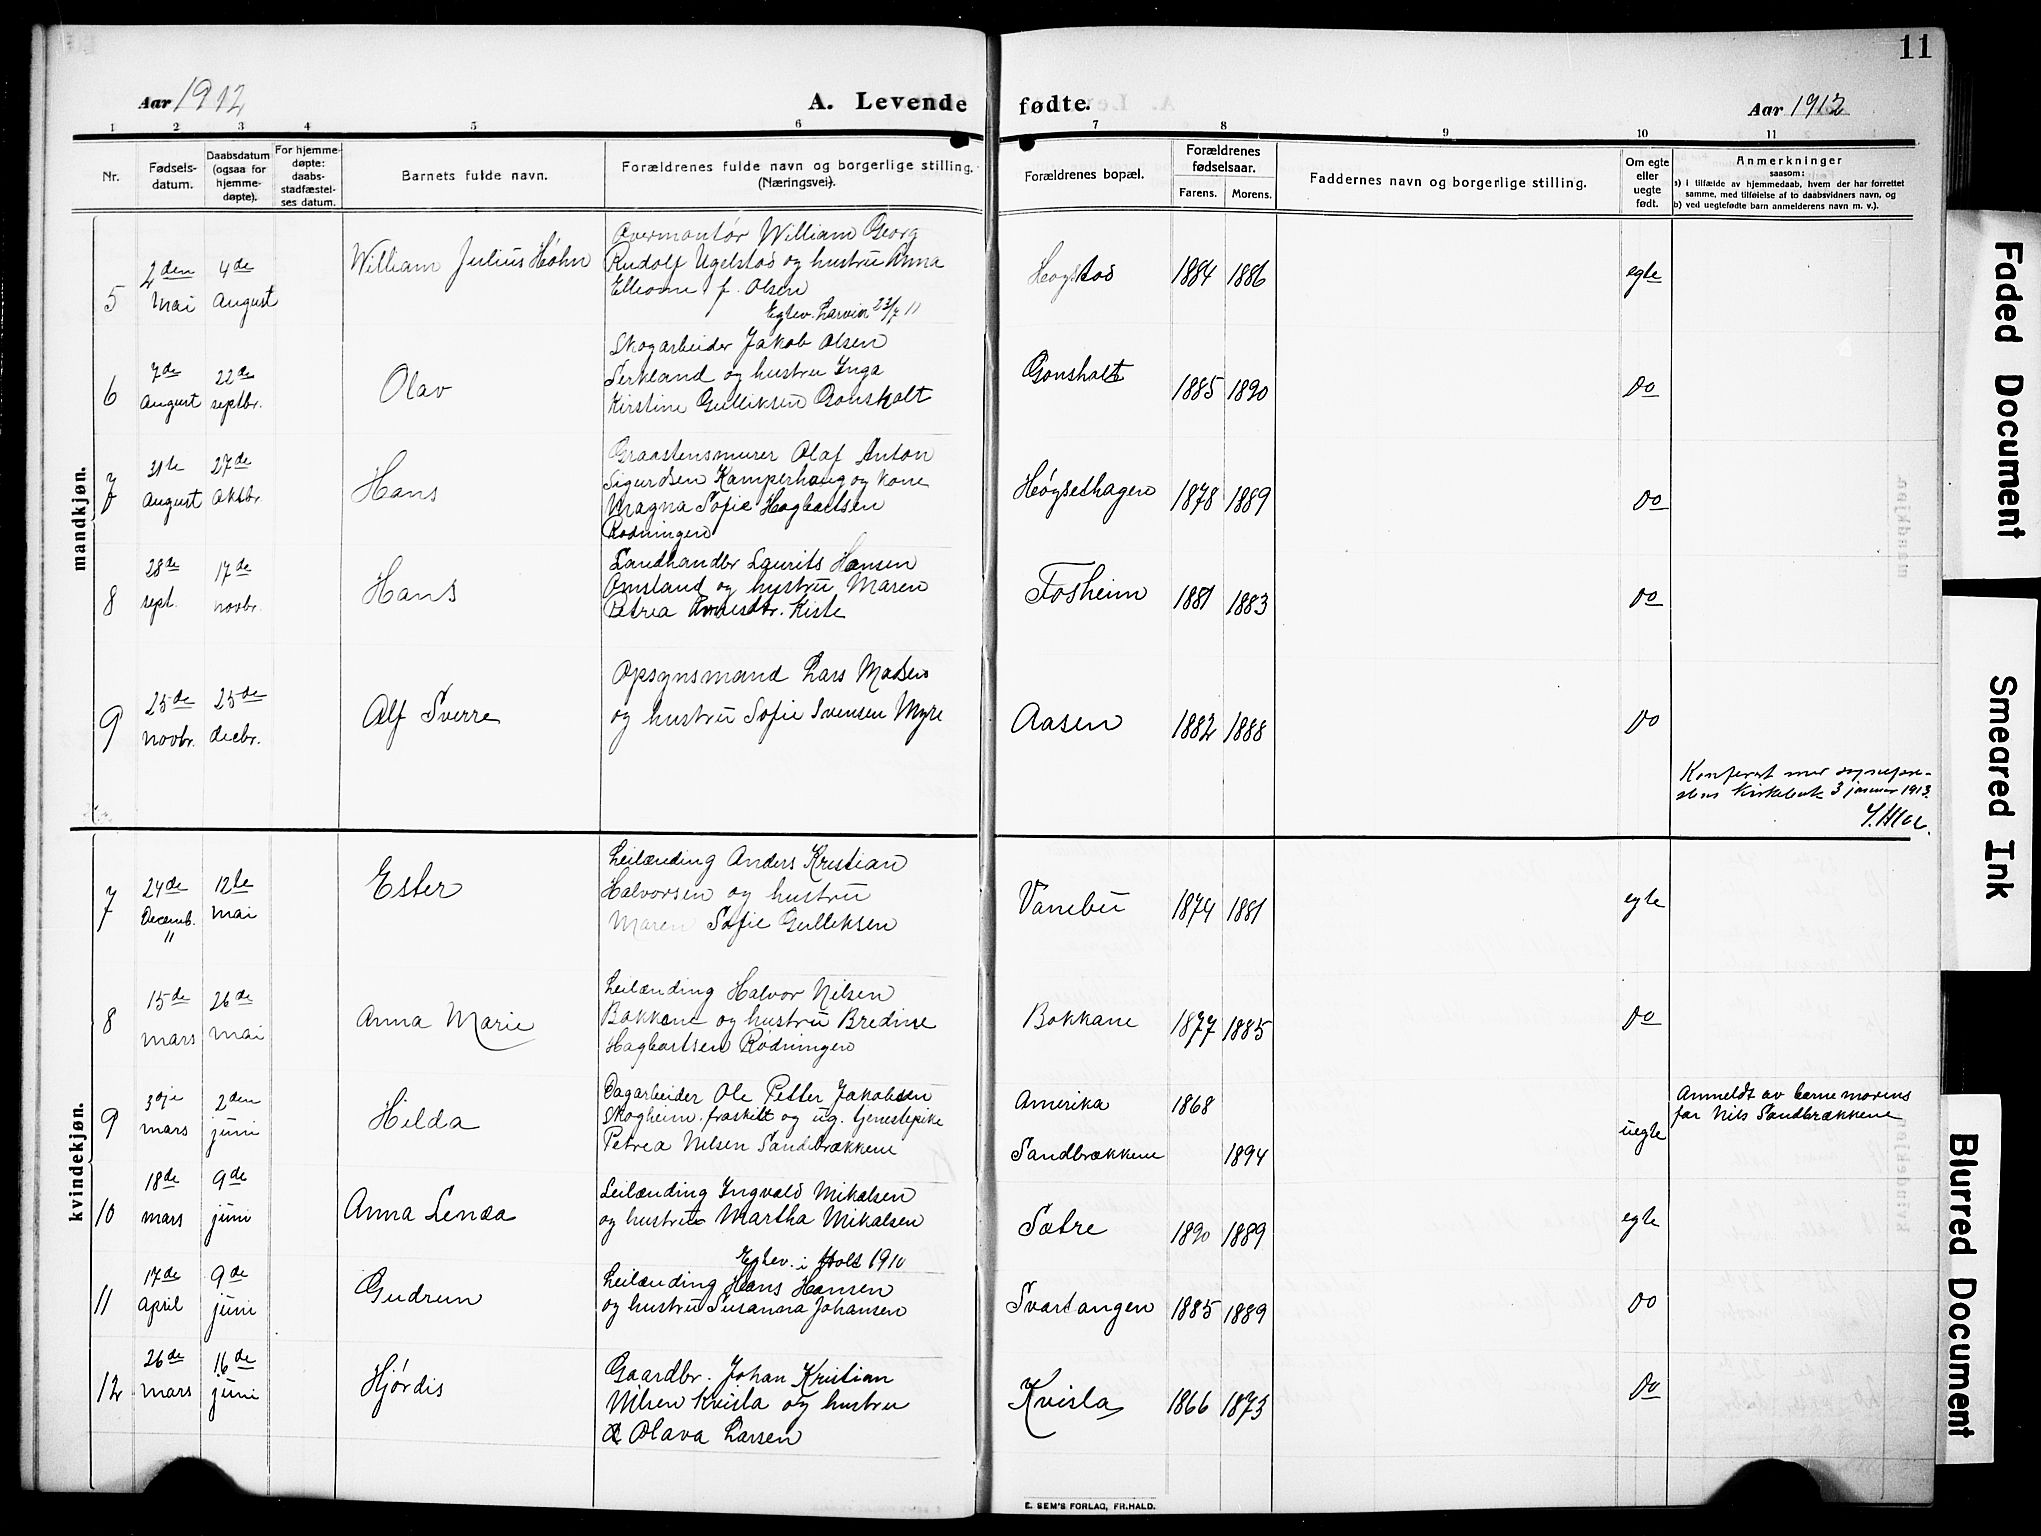 11
Aar 1912
A. Levende fødte.
Aar 1912
1 2 3 4 5 6 7 8 9 10 11
Nr.
Fødsels-
datum.
Daabsdatum
(ogsaa for
hjemme-
døpte).
For hjemme-
døpte:
daabs-
stadfæstel-
ses datum.
Barnets fulde navn.
Forældrenes fulde navn og borgerlige stilling.
(Næringsvei).
Forældrenes bopæl.
Forældrenes
fødselsaar.
Farens. Morens.
Faddernes navn og borgerlige stilling.
Om egte
eller
uegte
født.
Anmerkninger
saasom:
a) i tilfælde av hjemmedaab, hvem der har forrettet
samme, med tilføielse af to daabsvidners navn, og
b) ved uegtefødte barn anmelderens navn m. v.).
mandkjøn.
5
2den
Mai
4de
August
William Julius Høhn
Overmontør William Georg
Rudolf Ugelstad og hustru Anna
f. Olsen
Egtev. Larvik 23/7 11
Hogstad
1884 1886
egte
6
7de
August
22de
septbr.
Olav
Skogarbeider Jakob Olsen
Serkland og hustru Inga
Kirstine Gulliksen Gonsholt
Gonsholt
1885 1890
do
7
31te
August
27de
Oktbr.
Hans
Graastensmurer Olaf Anton
Sigurdsen Kamperhaug og kone
Magna Sofie Hagbartsen
Rødningen
Høgsethagen
1878 1889
do
8
28de
sept.
17de
novbr.
Hans
Landhandler Laurits Hansen
Omsland og hustru Maren
Petrea Kiste
Fosheim
1881 1883
do
9
25de
novbr.
25de
decbr.
Alf Sverre
Opsynsmand Lars Madsen
og hustru Sofie Svensen Myre
Aasen
1882 1888
do
Konferert med sogneprestens
kirkebok 3 januar 1913.
kvindekjøn.
7
24de
Decemb.
11
12te
mai
Ester
Leilænding Anders Kristian
Halvorsen og hustru
Maren Sofie Gulliksen
Vanebu
1874 1881
egte
8
15de
mars
26de
mai
Anna Marie
Leilænding Halvor Nilsen
Bakkane og hustru Bredine
Hagbartsen Rødningen
Bakkane
1877 1885
do
9
3dje
mars
2den
juni
Hilda
Dagarbeider Ole Petter Jakobsen
Skogheim, fraskilt og ug. tjenestepike
Petrea Nilsen Sandbrækkene
Amerika
1868
Sandbrækkene
1894
uegte
Anmeldt av barnemorens
far Nils Sandbrækkene
10
18de
mars
9de
juni
Anna Lenda
Leilænding Ingvald Mikalsen
og hustru Martha Mikalsen
Sætre
1890 1889
egte
11
17de
April
9de
juni
Gudrun
Egtev. i Holt 1910
Leilænding Hans Hansen
og hustru Susanna Johansen
Svartangen
1885 1889
do
12
26de
mars
16de
juni
Hjørdis
Gaardbr. Johan Kristian
Nilsen Kvisla og hustru
Olava Larsen
Kvisla
1866 1873
do
E. SEM'S FORLAG, FR.HALD.
Faded Document
Smeared Ink
Blurred Document